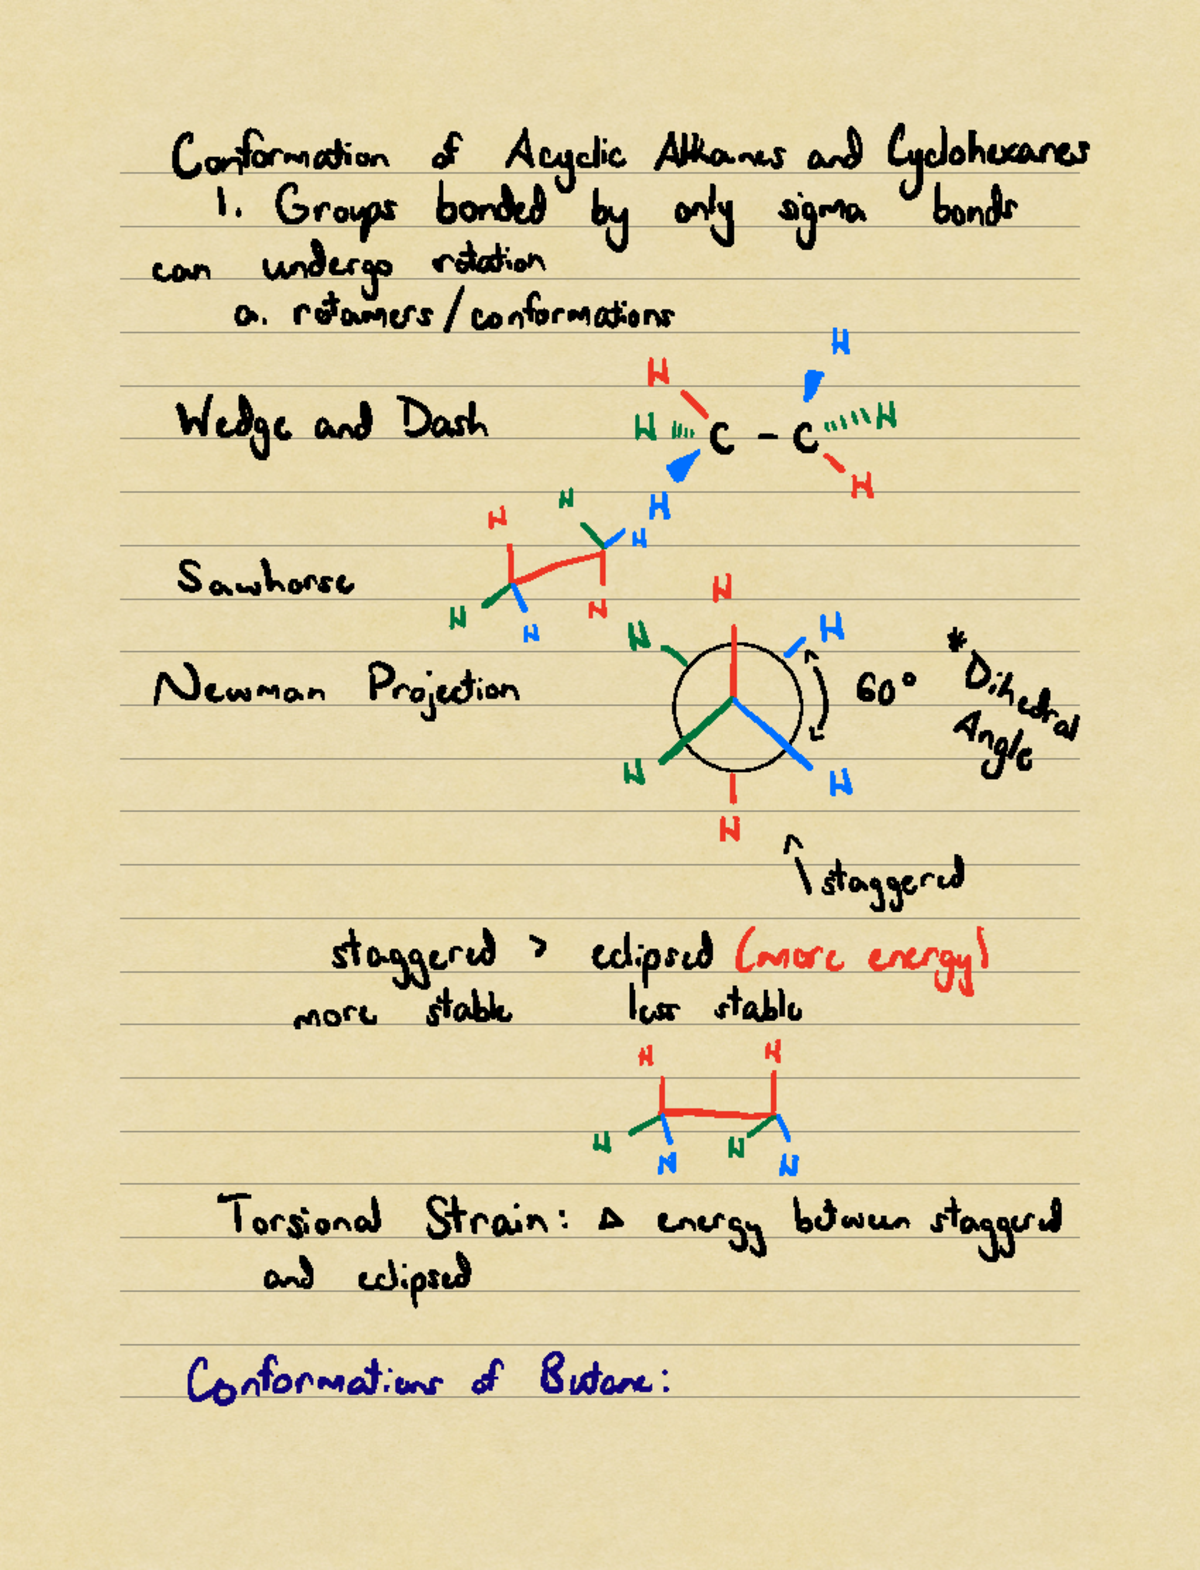 Conformation of Acyclic Alkanes and Cyclohexanes
1. Groups bonded by only sigma bonds
can undergo rotation
a. rotamers/conformations
H
H
Wedge and Dash
H
C - C
H
H
H
H
H
H
Sawhorse
H
H
H
H
H
H
Newman Projection
60°
* Dihedral
Angle
H
H
H
staggered
staggered > eclipsed (more energy)
more stable less stable
H H
H H H H
Torsional Strain: Δ energy between staggered
and eclipsed
Conformations of Butane: